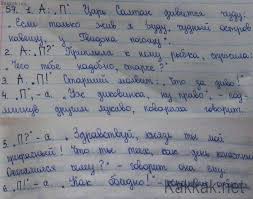 54. 1. А: „П". Царь Салтан дивится чуду:
„Если только жив я буду, чудный остров
навещу, у Гвидона погощу".
2. А: „П?" Приплыла к нему рыбка, спросила:
„Чего тебе надобно, старче?"
3. А: „П!" Старший молвил: „Что за диво!"
4. „П", - а. „Уж диковинка, ну право", - под
мигнув другим лукаво, повариха говорит
5. „П?" - а. „Здравствуй, князь ты мой
прекрасный! Что ты тих, как день ненастный?
Опечалился чему?" - говорит она ему.
6. „П!", - а. „Как обидно!"
Kakkak.net